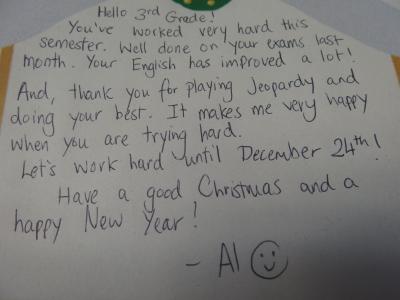 Hello 3rd Grade!
You've worked very hard this
semester. Well done on your exams last
month. Your English has improved a lot!
And, thank you for playing Jeopardy and
doing your best. It makes me very happy
when you are trying hard.
Let's work hard until December 24th!
Have a good Christmas and a
happy New Year!
- Al ☺